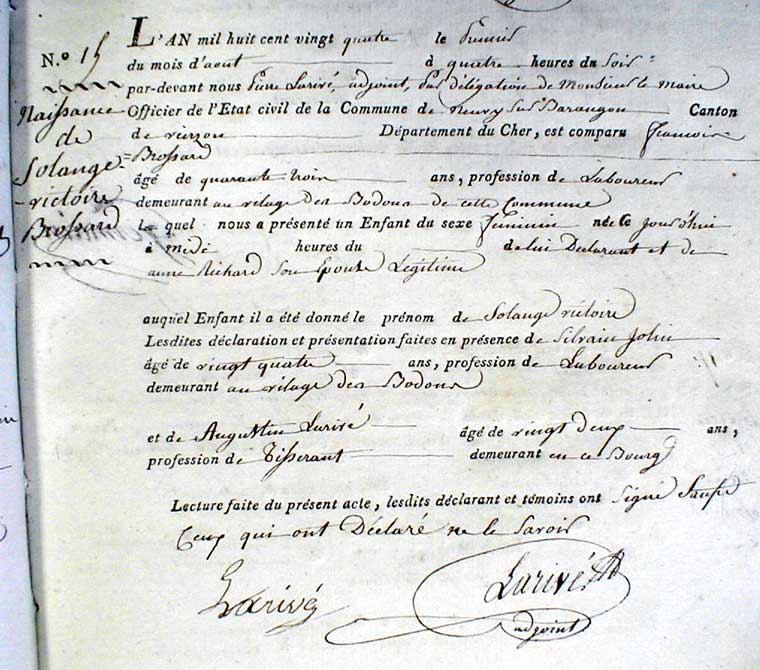 N.o 15
Naissance
de
Solange
victoire
Brossard
L'AN mil huit cent vingt quatre le premier
du mois d'aout à quatre heures du Soir
par-devant nous Pierre Larivé, adjoint, par délégation de Monsieur le maire
Officier de l'Etat civil de la Commune de neuvy sur Barangon Canton
de vierzon Département du Cher, est comparu francois
Brossard
âgé de quarante trois ans, profession de Laboureur
demeurant au vilage des Bodons de cette Commune
le quel nous a présenté un Enfant du sexe feminin née Ce jourd'hui
à midi heures du de lui Déclarant et de
anne Richard Son Epouse Légitime
auquel Enfant il a été donné le prénom de Solange victoire
Lesdites déclaration et présentation faites en présence de Silvain Jolin
âgé de vingt quatre ans, profession de Laboureur
demeurant au vilage des Bodons
et de Augustin Larivé âgé de vingt deux ans,
profession de Tisserant demeurant en ce Bourg
Lecture faite du présent acte, lesdits déclarant et témoins ont Signé Saufs
Ceux qui ont Déclaré ne le Savoir
Larivé
Larivé
adjoint